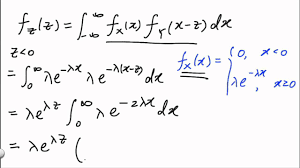 f_z(z) = ∫_{-∞}^{∞} f_x(x) f_Y(x-z) dx
z<0
= ∫_0^∞ λe^{-λx} λe^{-λ(x-z)} dx
f_x(x) = { 0, x<0
λe^{-λx}, x≥0
= λe^{λz} ∫_0^∞ λe^{-2λx} dx
= λe^{λz} (